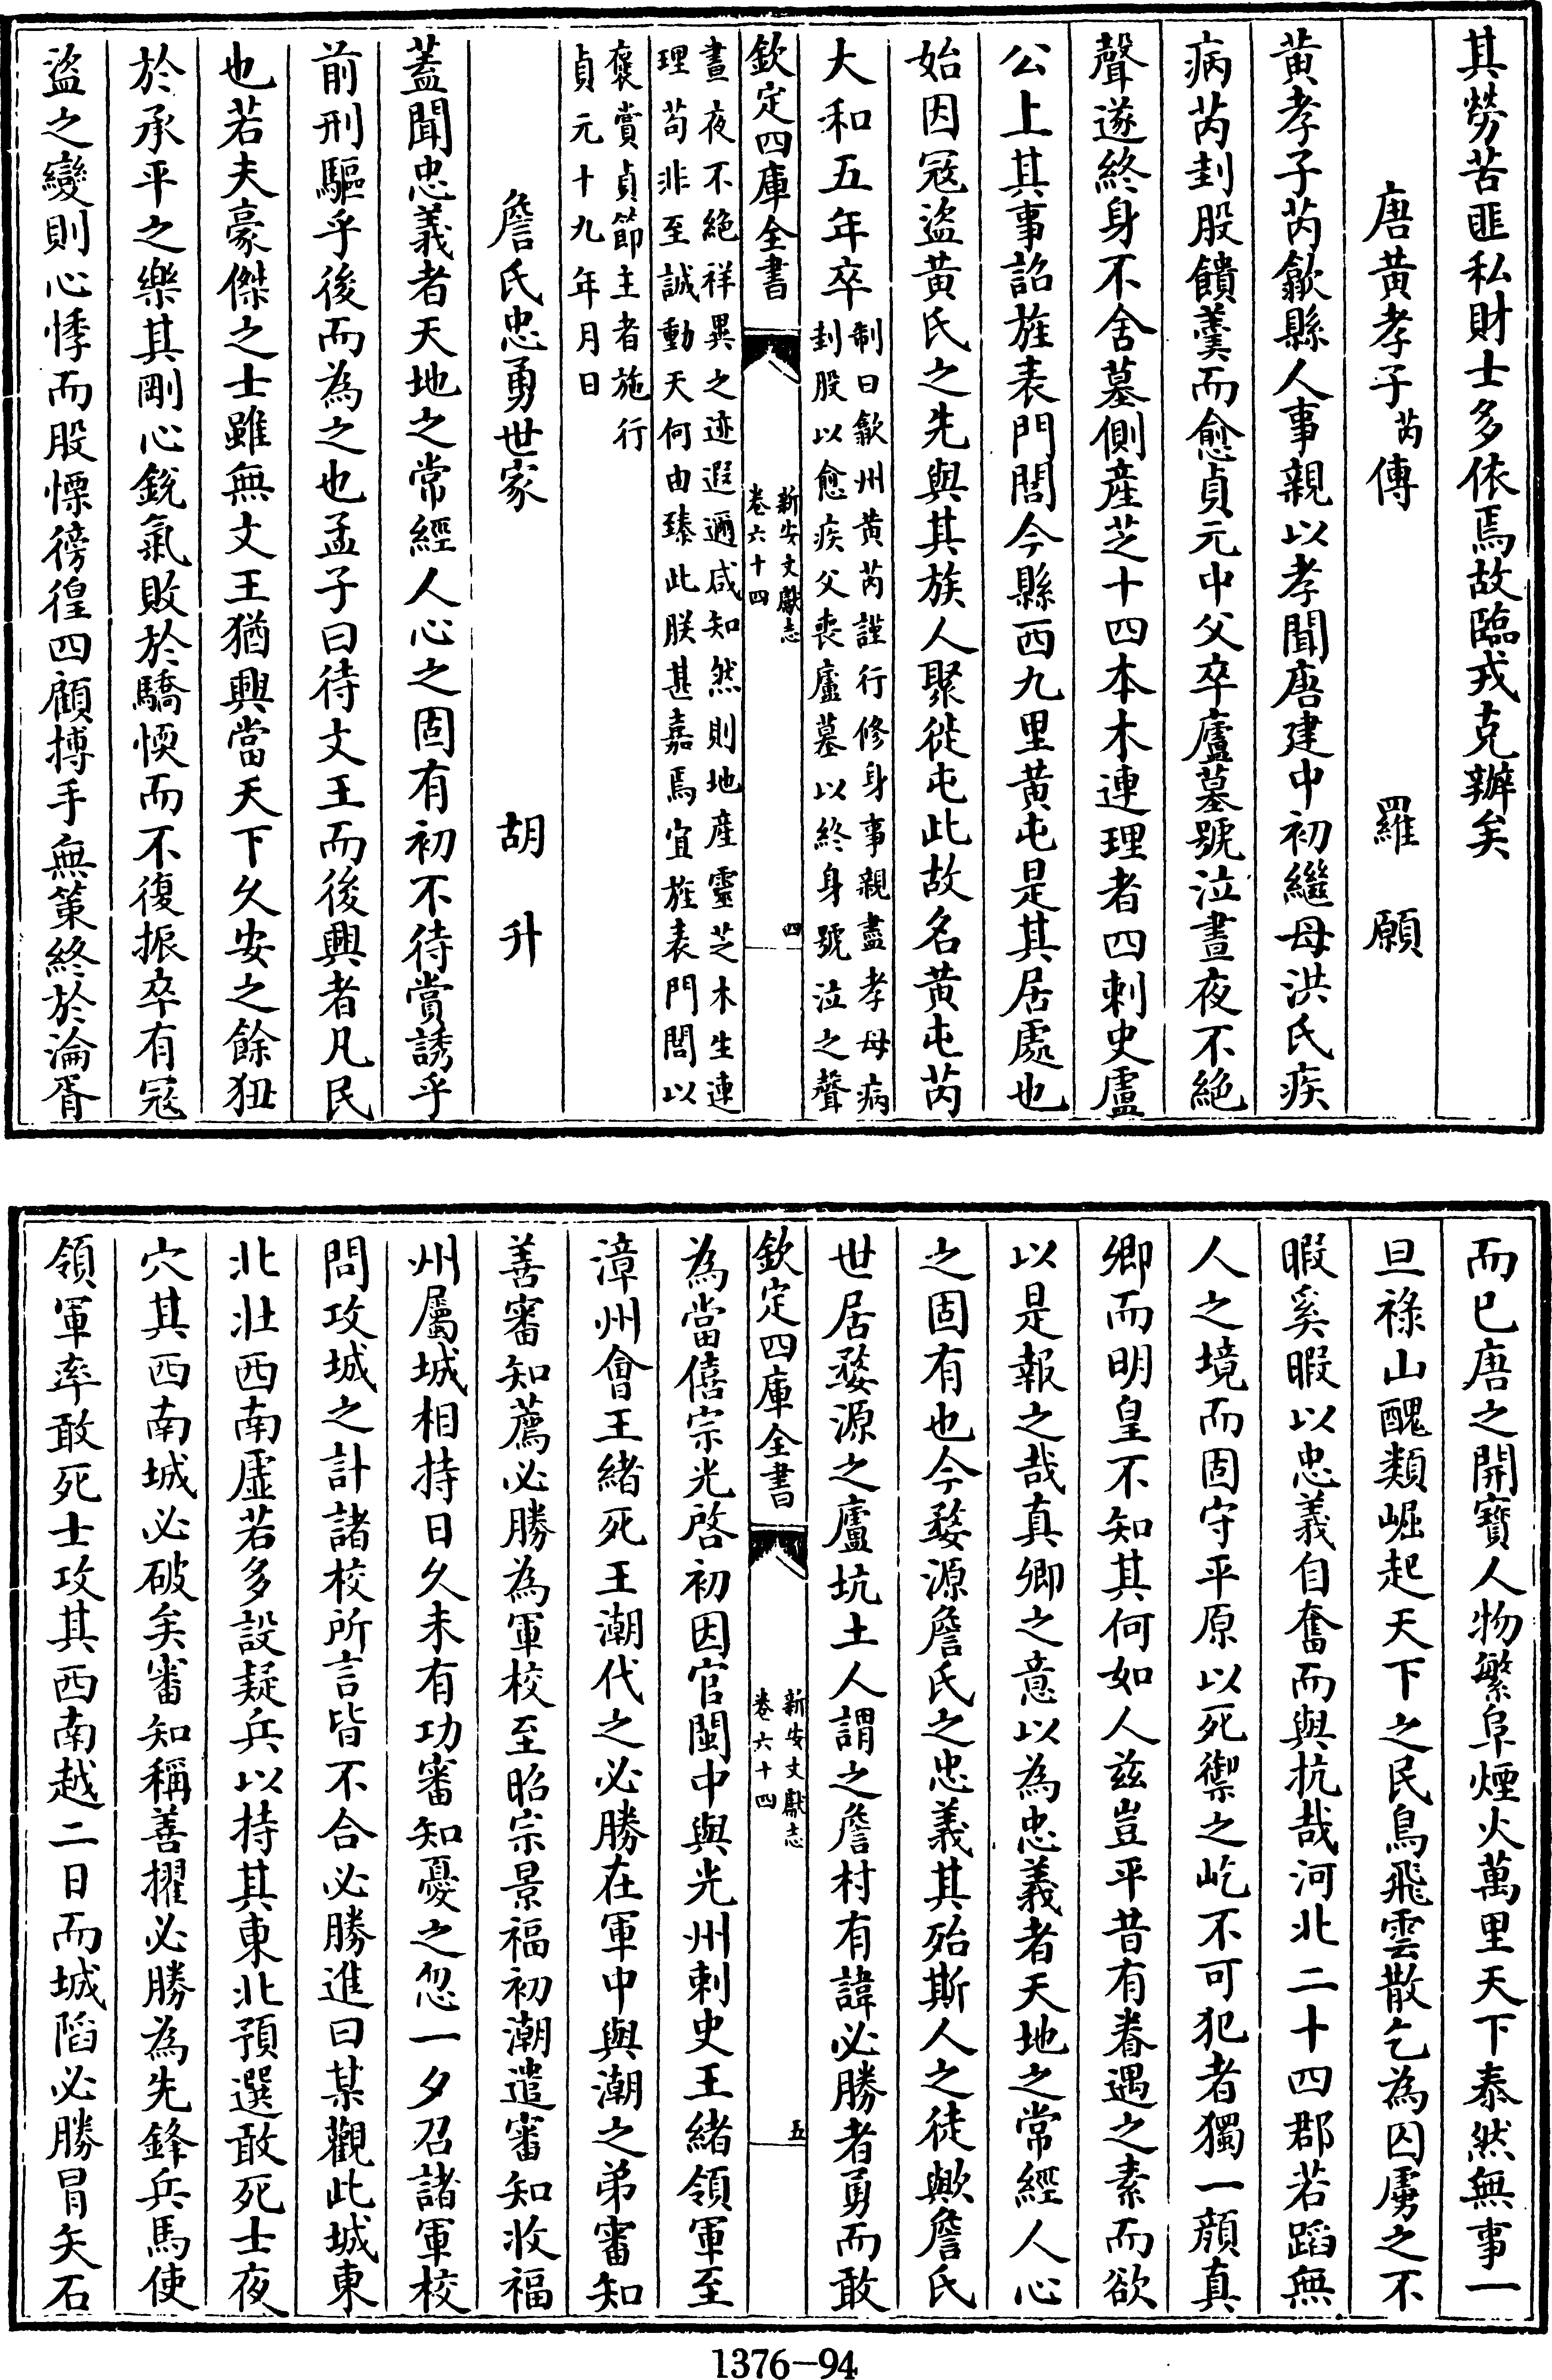 其勞苦匪私財士多依焉故臨戎克辦矣
唐黃孝子芮傳　羅願
黃孝子芮歙縣人事親以孝聞唐建中初繼母洪氏疾
病芮刲股饋羹而愈貞元中父卒廬墓號泣晝夜不絕
聲遂終身不舍墓側產芝十四本木連理者四刺史盧
公上其事詔旌表門閭今縣西九里黃屯是其居處也
始因寇盜黃氏之先與其族人聚徙屯此故名黃屯芮
大和五年卒
制曰歙州黃芮謹行修身事親盡孝母病
刲股以愈疾父喪廬墓以終身號泣之聲
欽定四庫全書
新安文獻志
卷六十四
四
晝夜不絕祥異之迹遐邇咸知然則地產靈芝木生連
理苟非至誠動天何由臻此朕甚嘉焉宜旌表門閭以
褒賞貞節主者施行
貞元十九年月日
詹氏忠勇世家　胡升
蓋聞忠義者天地之常經人心之固有初不待賞誘乎
前刑驅乎後而為之也孟子曰待文王而後興者凡民
也若夫豪傑之士雖無文王猶興當天下久安之餘狃
於承平之樂其剛心銳氣敗於驕愞而不復振卒有寇
盜之變則心悸而股慄徬徨四顧搏手無策終於淪胥
而已唐之開寶人物繁阜煙火萬里天下泰然無事一
旦祿山醜類崛起天下之民鳥飛雲散乞為囚虜之不
暇奚暇以忠義自奮而與抗哉河北二十四郡若蹈無
人之境而固守平原以死禦之屹不可犯者獨一顏真
卿而明皇不知其何如人兹豈平昔有眷遇之素而欲
以是報之哉真卿之意以為忠義者天地之常經人心
之固有也今婺源詹氏之忠義其殆斯人之徒歟詹氏
世居婺源之廬坑土人謂之詹村有諱必勝者勇而敢
欽定四庫全書
新安文獻志
卷六十四
五
為當僖宗光啓初因官閩中與光州刺史王緒領軍至
漳州會王緒死王潮代之必勝在軍中與潮之弟審知
善審知薦必勝為軍校至昭宗景福初潮遣審知收福
州屬城相持日久未有功審知憂之忽一夕召諸軍校
問攻城之計諸校所言皆不合必勝進曰某觀此城東
北壯西南虛若多設疑兵以持其東北預選敢死士夜
穴其西南城必破矣審知稱善擢必勝為先鋒兵馬使
領軍率敢死士攻其西南越二日而城陷必勝冒矢石
1376-94